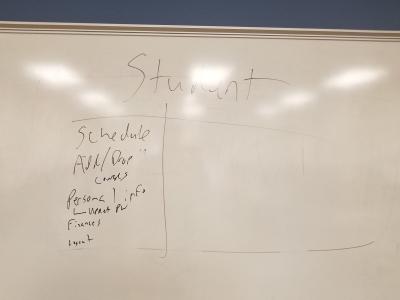 Student
Schedule
Add/Drop
courses
Personal info
Finances
Logout